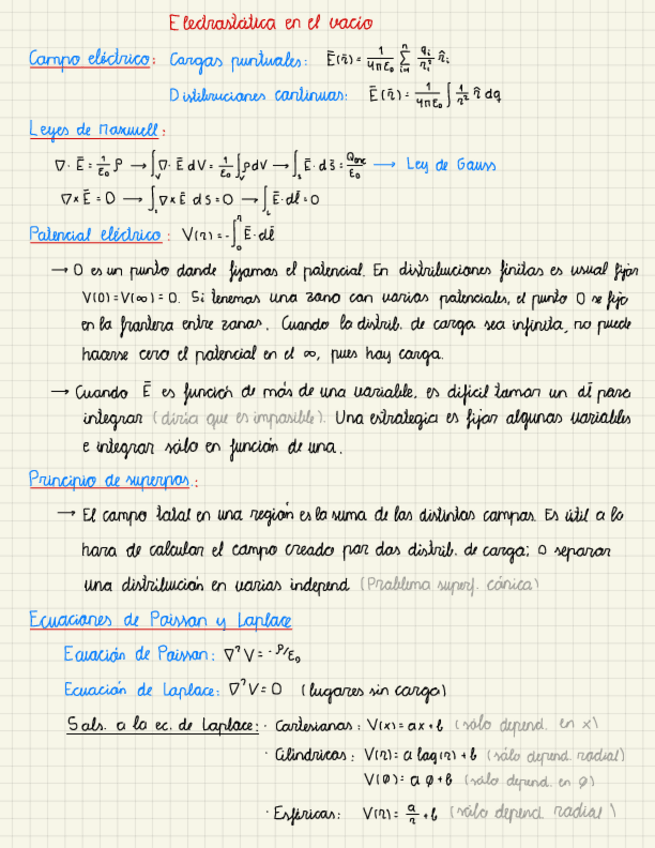 Electrostática en el vacío
Campo eléctrico: Cargas puntuales: Ē(r̄) = 1/4πε₀ Σᵢ₌₁ⁿ qᵢ/rᵢ² r̂ᵢ
Distribuciones continuas: Ē(r̄) = 1/4πε₀ ∫ 1/r² r̂ dq
Leyes de Maxwell:
∇·Ē = 1/ε₀ ρ → ∫ᵥ ∇·Ē dV = 1/ε₀ ∫ᵥ ρdV → ∫ₛ Ē·ds̄ = Qenc/ε₀ → Ley de Gauss
∇×Ē = 0 → ∫ₛ ∇×Ē ds = 0 → ∫_L Ē·dl̄ = 0
Potencial eléctrico: V(r) = -∫₀ʳ Ē·dl̄
→ O es un punto donde fijamos el potencial. En distribuciones finitas es usual fijar
V(0)=V(∞)=0. Si tenemos una zona con varios potenciales, el punto O se fija
en la frontera entre zonas. Cuando la distrib. de carga sea infinita, no puede
hacerse cero el potencial en el ∞, pues hay carga.
→ Cuando Ē es función de más de una variable, es difícil tomar un dl̄ para
integrar (diría que es imposible). Una estrategia es fijar algunas variables
e integrar sólo en función de una.
Principio de superpos.:
→ El campo total en una región es la suma de los distintos campos. Es útil a la
hora de calcular el campo creado por dos distrib. de carga; o separar
una distribución en varias independ (Problema superf. cónica)
Ecuaciones de Poisson y Laplace
Ecuación de Poisson: ∇²V = -ρ/ε₀
Ecuación de Laplace: ∇²V = 0 (lugares sin carga)
Sols. a la ec. de Laplace: · Cartesianas: V(x) = ax+b (sólo depend. en x)
· Cilíndricas: V(r) = a log(r) + b (sólo depend. radial)
V(φ) = a φ + b (sólo depend. en φ)
· Esféricas: V(r) = a/r + b (sólo depend. radial)